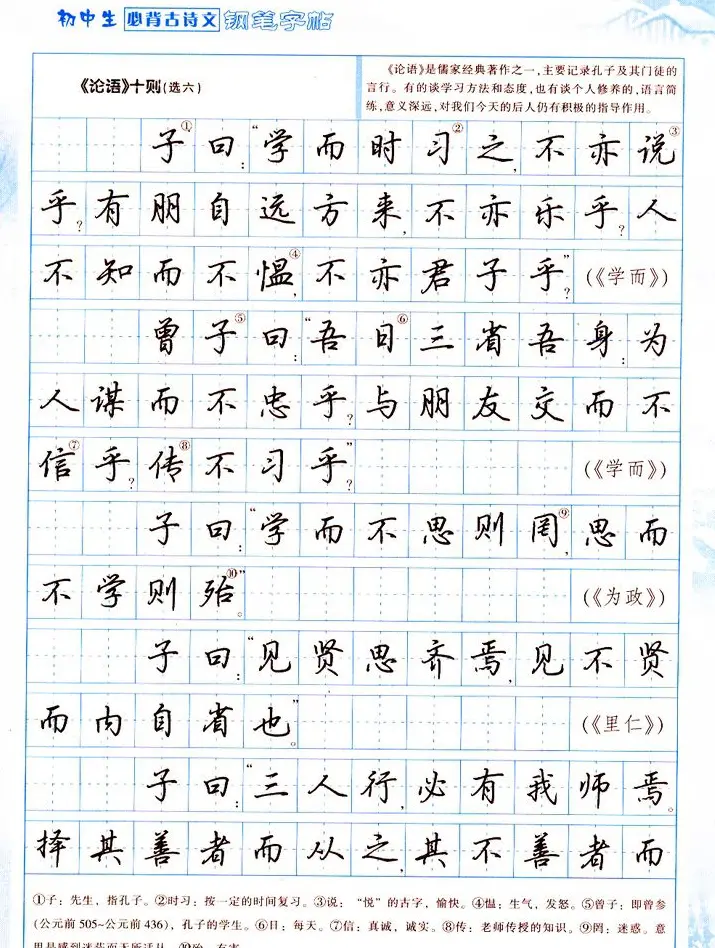 初中生 必背古诗文 钢笔字帖
《论语》十则(选六)
《论语》是儒家经典著作之一,主要记录孔子及其门徒的
言行。有的谈学习方法和态度,也有谈个人修养的,语言简
练,意义深远,对我们今天的后人仍有积极的指导作用。
子①曰:“学而时习②之,不亦说③
乎?有朋自远方来,不亦乐乎?人
不知而不愠④,不亦君子乎?”(《学而》)
曾子⑤曰:“吾日⑥三省吾身:为
人谋而不忠乎?与朋友交而不
信⑦乎?传⑧不习乎?”(《学而》)
子曰:“学而不思则罔⑨,思而
不学则殆⑩。”(《为政》)
子曰:“见贤思齐焉,见不贤
而内自省也。”(《里仁》)
子曰:“三人行,必有我师焉。
择其善者而从之,其不善者而
①子:先生,指孔子。②时习:按一定的时间复习。③说:“悦”的古字,愉快。④愠:生气,发怒。⑤曾子:即曾参
(公元前505~公元前436),孔子的学生。⑥日:每天。⑦信:真诚,诚实。⑧传:老师传授的知识。⑨罔:迷惑。意
思是感到迷茫而无所适从。⑩殆:有害。